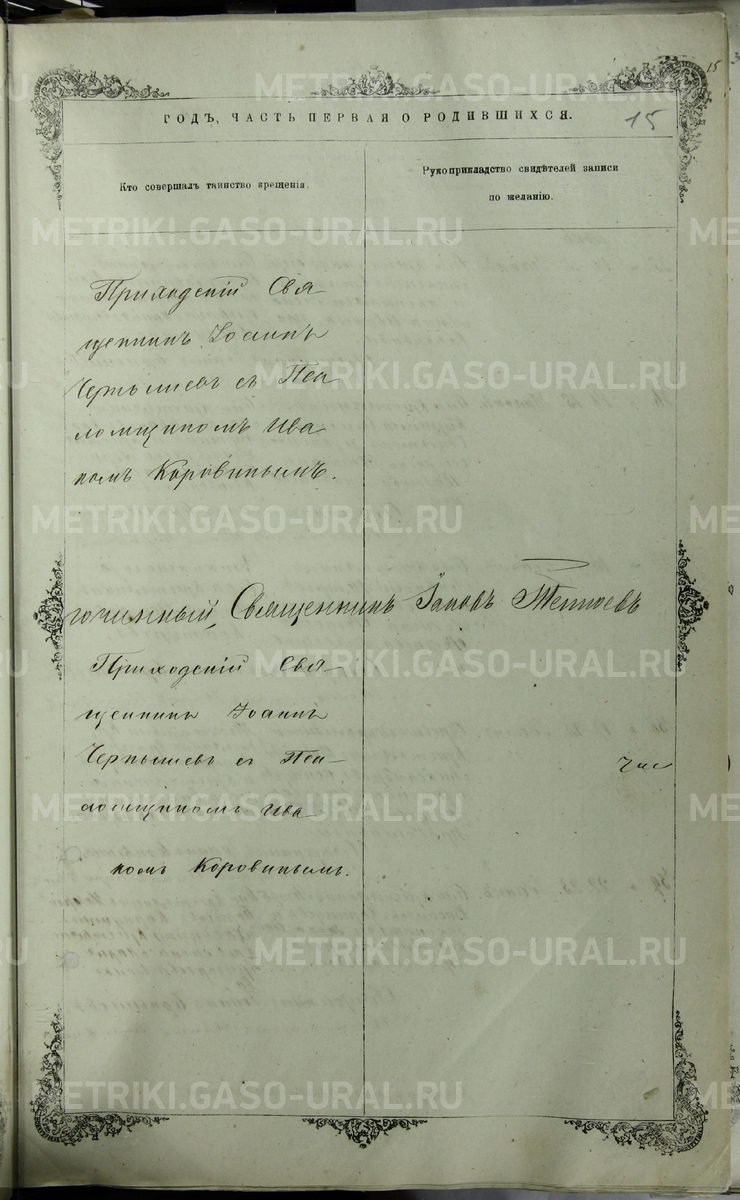 15
ГОДЪ, ЧАСТЬ ПЕРВАЯ О РОДИВШИХСЯ.
15
Кто совершалъ таинство крещенія.
Рукоприкладство свидѣтелей записи
по желанію.
Приходскій Свя-
щенникъ Іоаннъ
Чернышевъ съ Пса
ломщикомъ Ива
номъ Коровинымъ.
гочинный, Священникъ Іаковъ
Приходскій Свя-
щенникъ Іоаннъ
Чернышевъ съ Пса-
ломщикомъ Ива
Час
номъ Коровинымъ.
METRIKI.GASO-URAL.RU